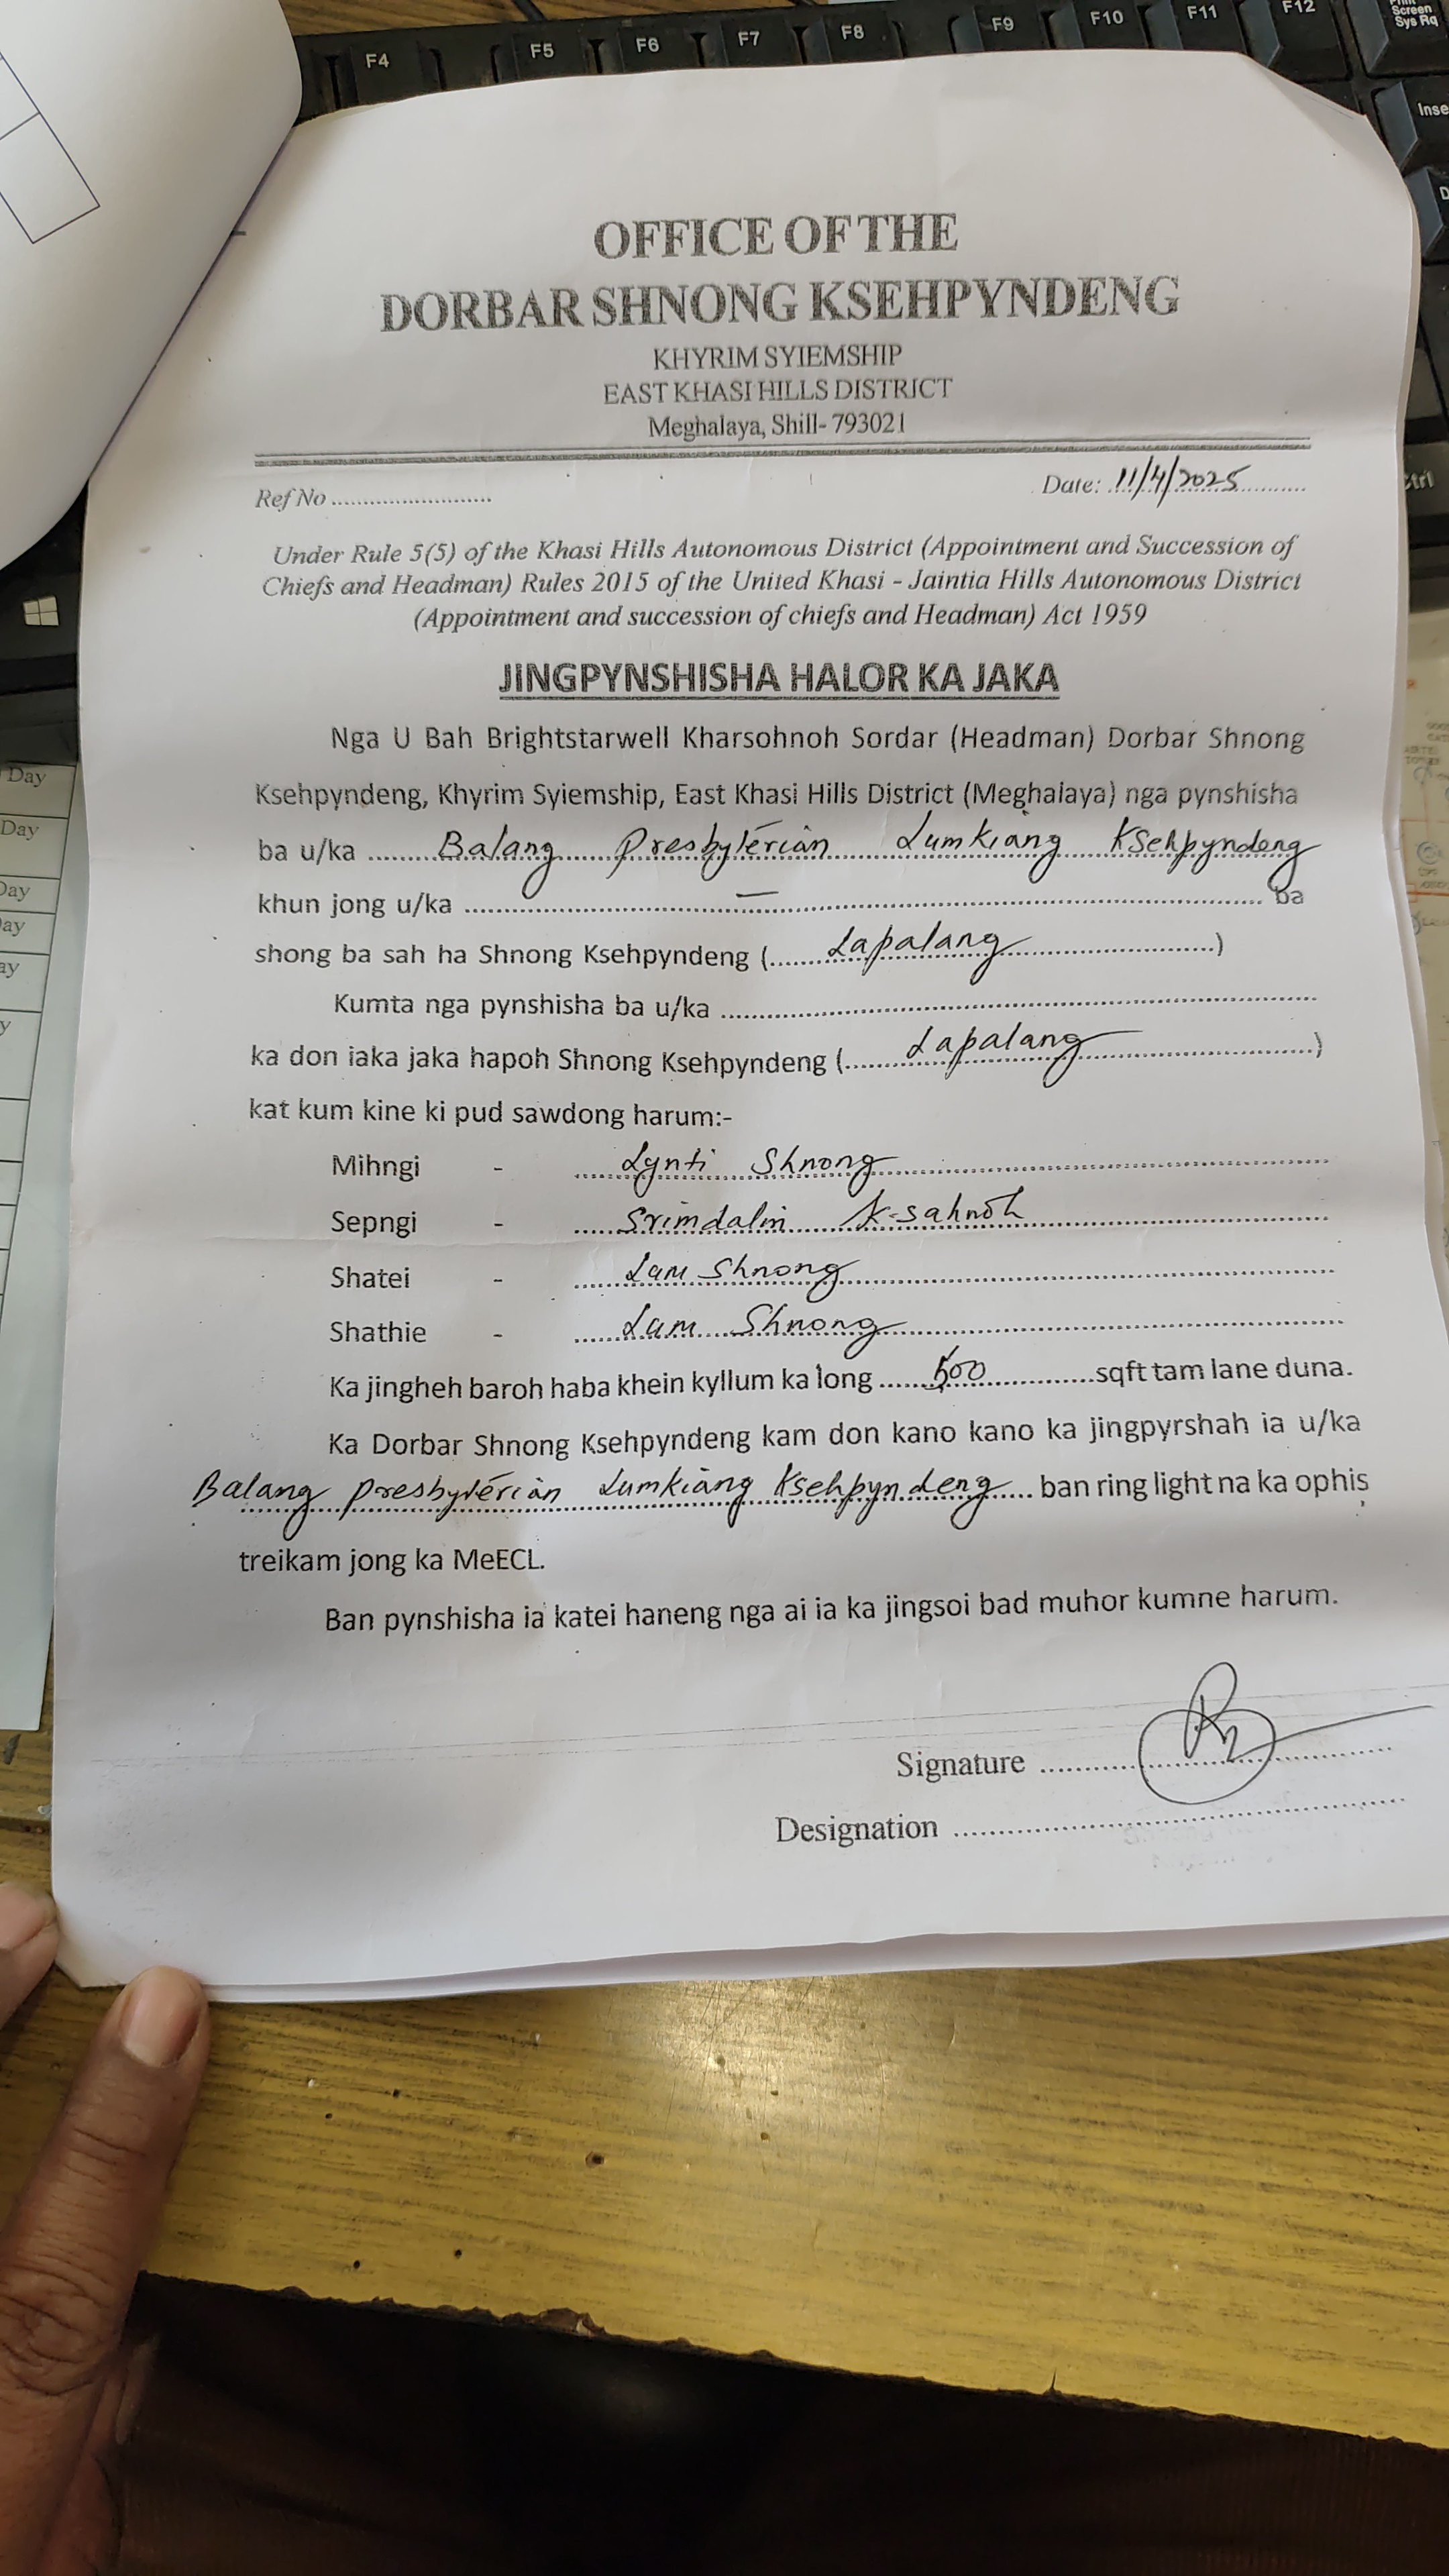 F4 F5 F6 F7 F8 F9 F10 F11 F12 Print Screen Sys Rq
Inse
Ctrl
OFFICE OF THE
DORBAR SHNONG KSEHPYNDENG
KHYRIM SYIEMSHIP
EAST KHASI HILLS DISTRICT
Meghalaya, Shill- 793021
Ref No .......................... Date: 11/4/2025
Under Rule 5(5) of the Khasi Hills Autonomous District (Appointment and Succession of
Chiefs and Headman) Rules 2015 of the United Khasi - Jaintia Hills Autonomous District
(Appointment and succession of chiefs and Headman) Act 1959
JINGPYNSHISHA HALOR KA JAKA
Nga U Bah Brightstarwell Kharsohnoh Sordar (Headman) Dorbar Shnong
Ksehpyndeng, Khyrim Syiemship, East Khasi Hills District (Meghalaya) nga pynshisha
ba u/ka Balang Presbyterian Lumkiang Ksehpyndeng
khun jong u/ka — ba
shong ba sah ha Shnong Ksehpyndeng ( Lapalang )
Kumta nga pynshisha ba u/ka ..........
ka don iaka jaka hapoh Shnong Ksehpyndeng ( Lapalang )
kat kum kine ki pud sawdong harum:-
Mihngi - Lynti Shnong
Sepngi - Srimdalin K-sahnoh
Shatei - Lam Shnong
Shathie - Lam Shnong
Ka jingheh baroh haba khein kyllum ka long 500 sqft tam lane duna.
Ka Dorbar Shnong Ksehpyndeng kam don kano kano ka jingpyrshah ia u/ka
Balang Presbyterian Lumkiang Ksehpyndeng ban ring light na ka ophis
treikam jong ka MeECL.
Ban pynshisha ia katei haneng nga ai ia ka jingsoi bad muhor kumne harum.
Signature ..........
Designation ..........
Day
Day
Day